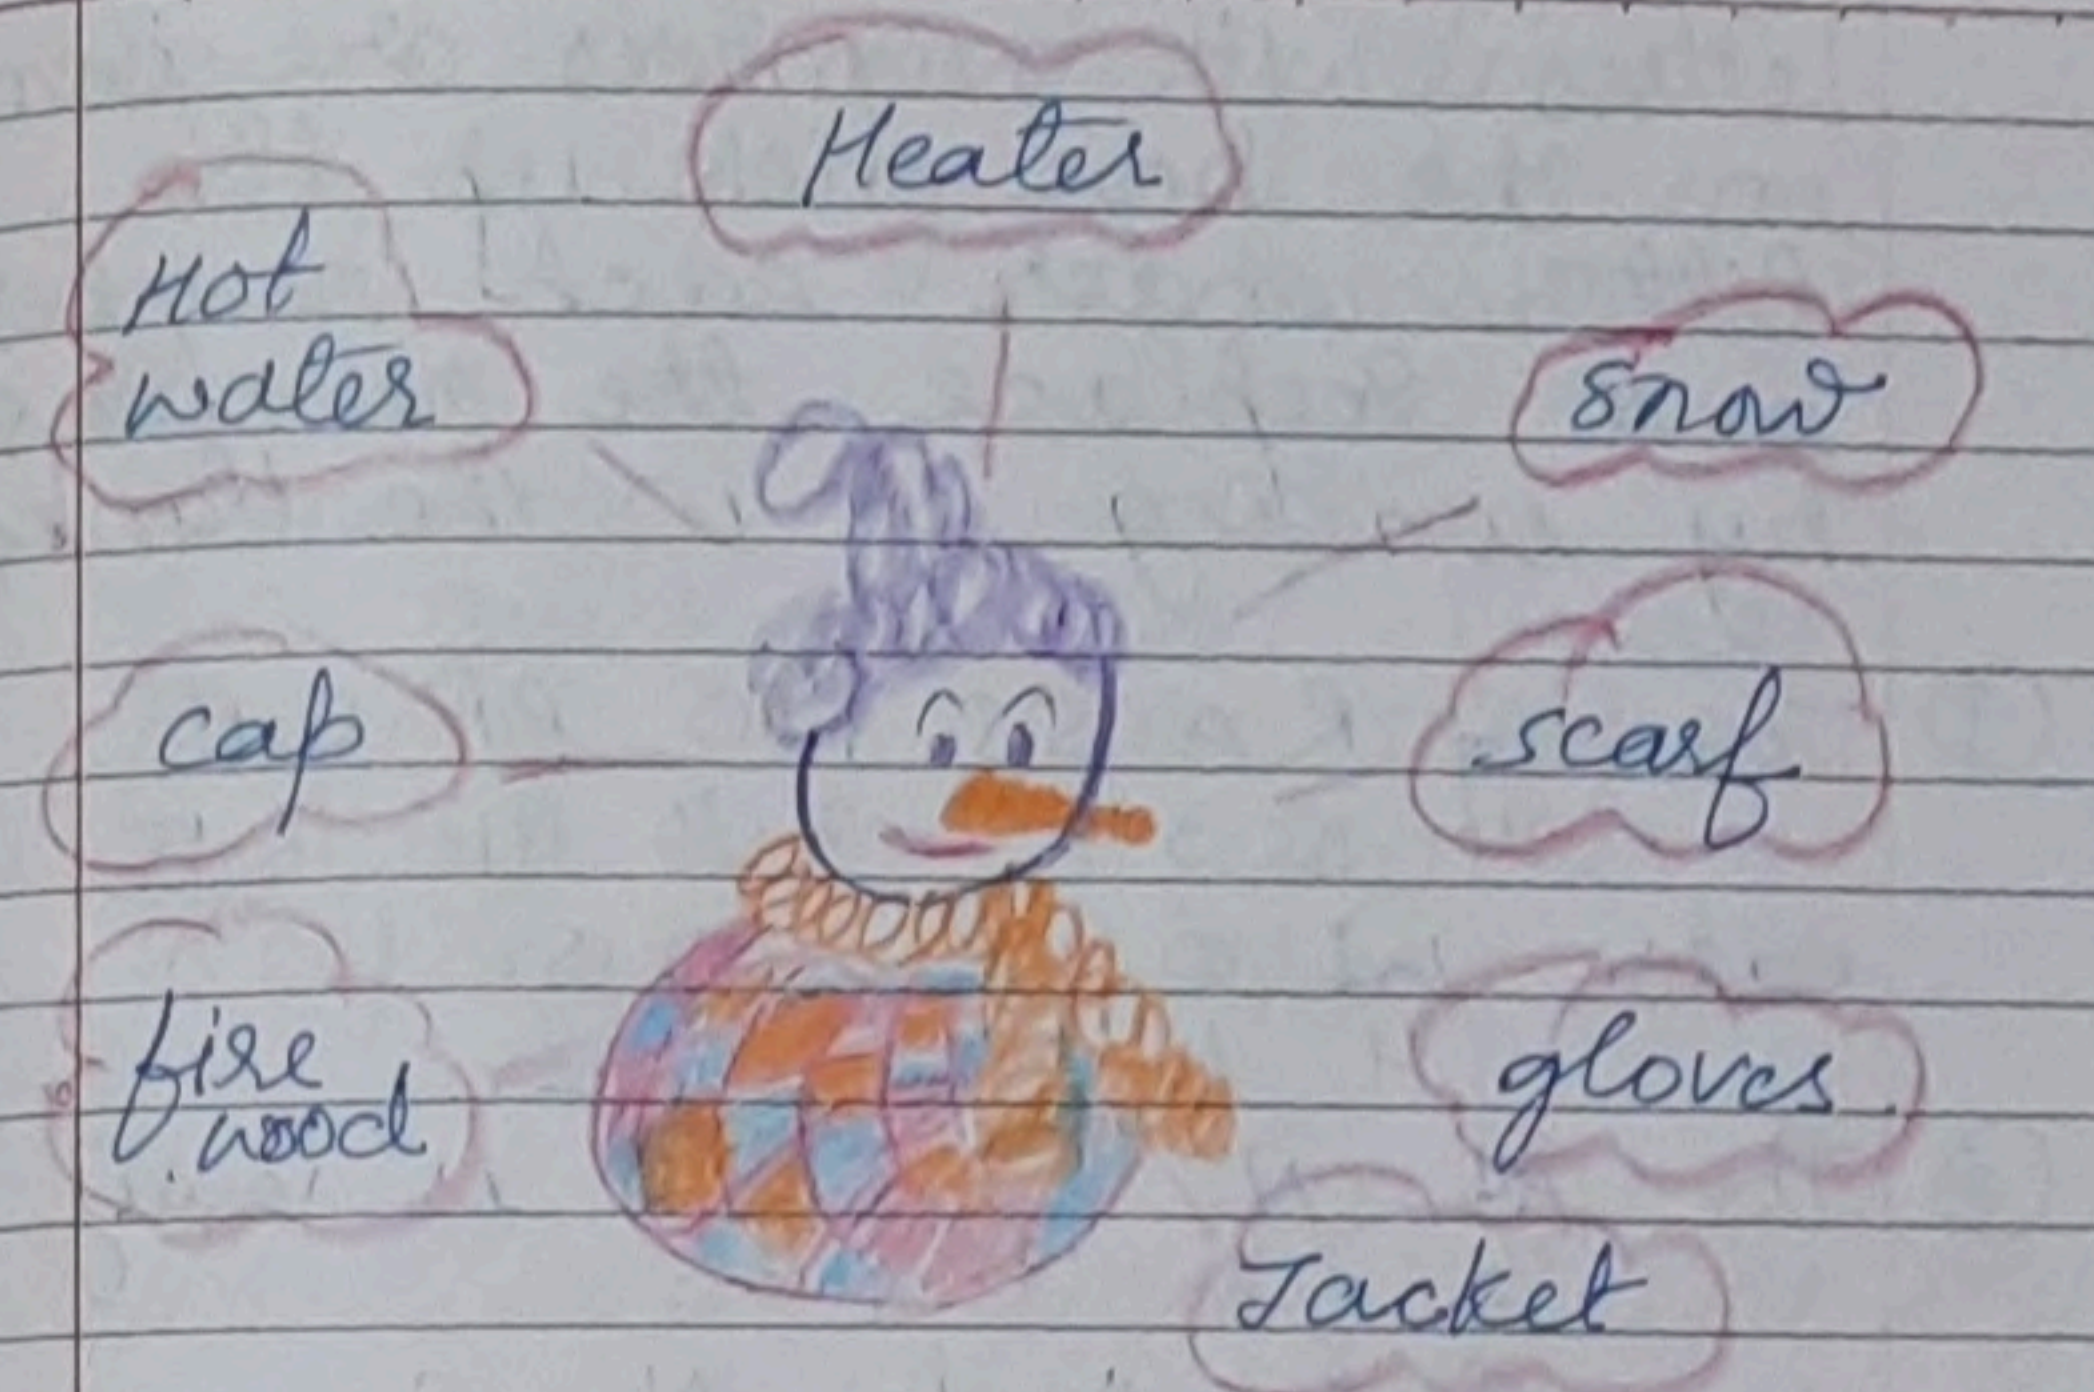 Heater
Hot
water
Snow
cap
scarf
fire
wood
gloves
Jacket